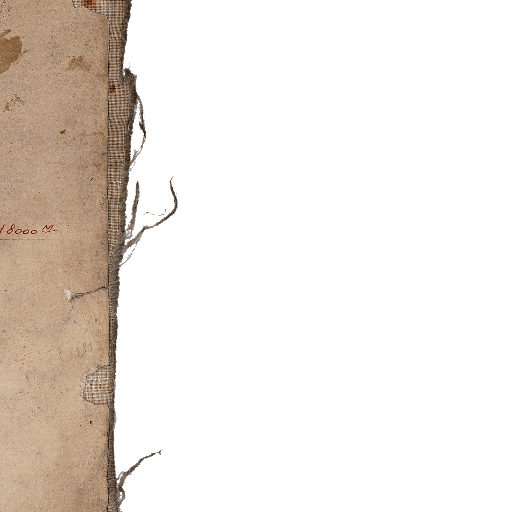 18000 M